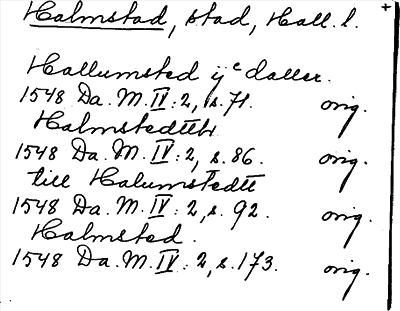 Halmstad, stad, Hall. l. +
Hallumsted ijᶜ daller.
1548 Da. M. IV: 2, s. 71. orig.
Halmstedtt
1548 Da. M. IV: 2, s. 86. orig.
till Halumstedtt
1548 Da. M. IV: 2, s. 92. orig.
Halmsted.
1548 Da. M. IV: 2, s. 173. orig.